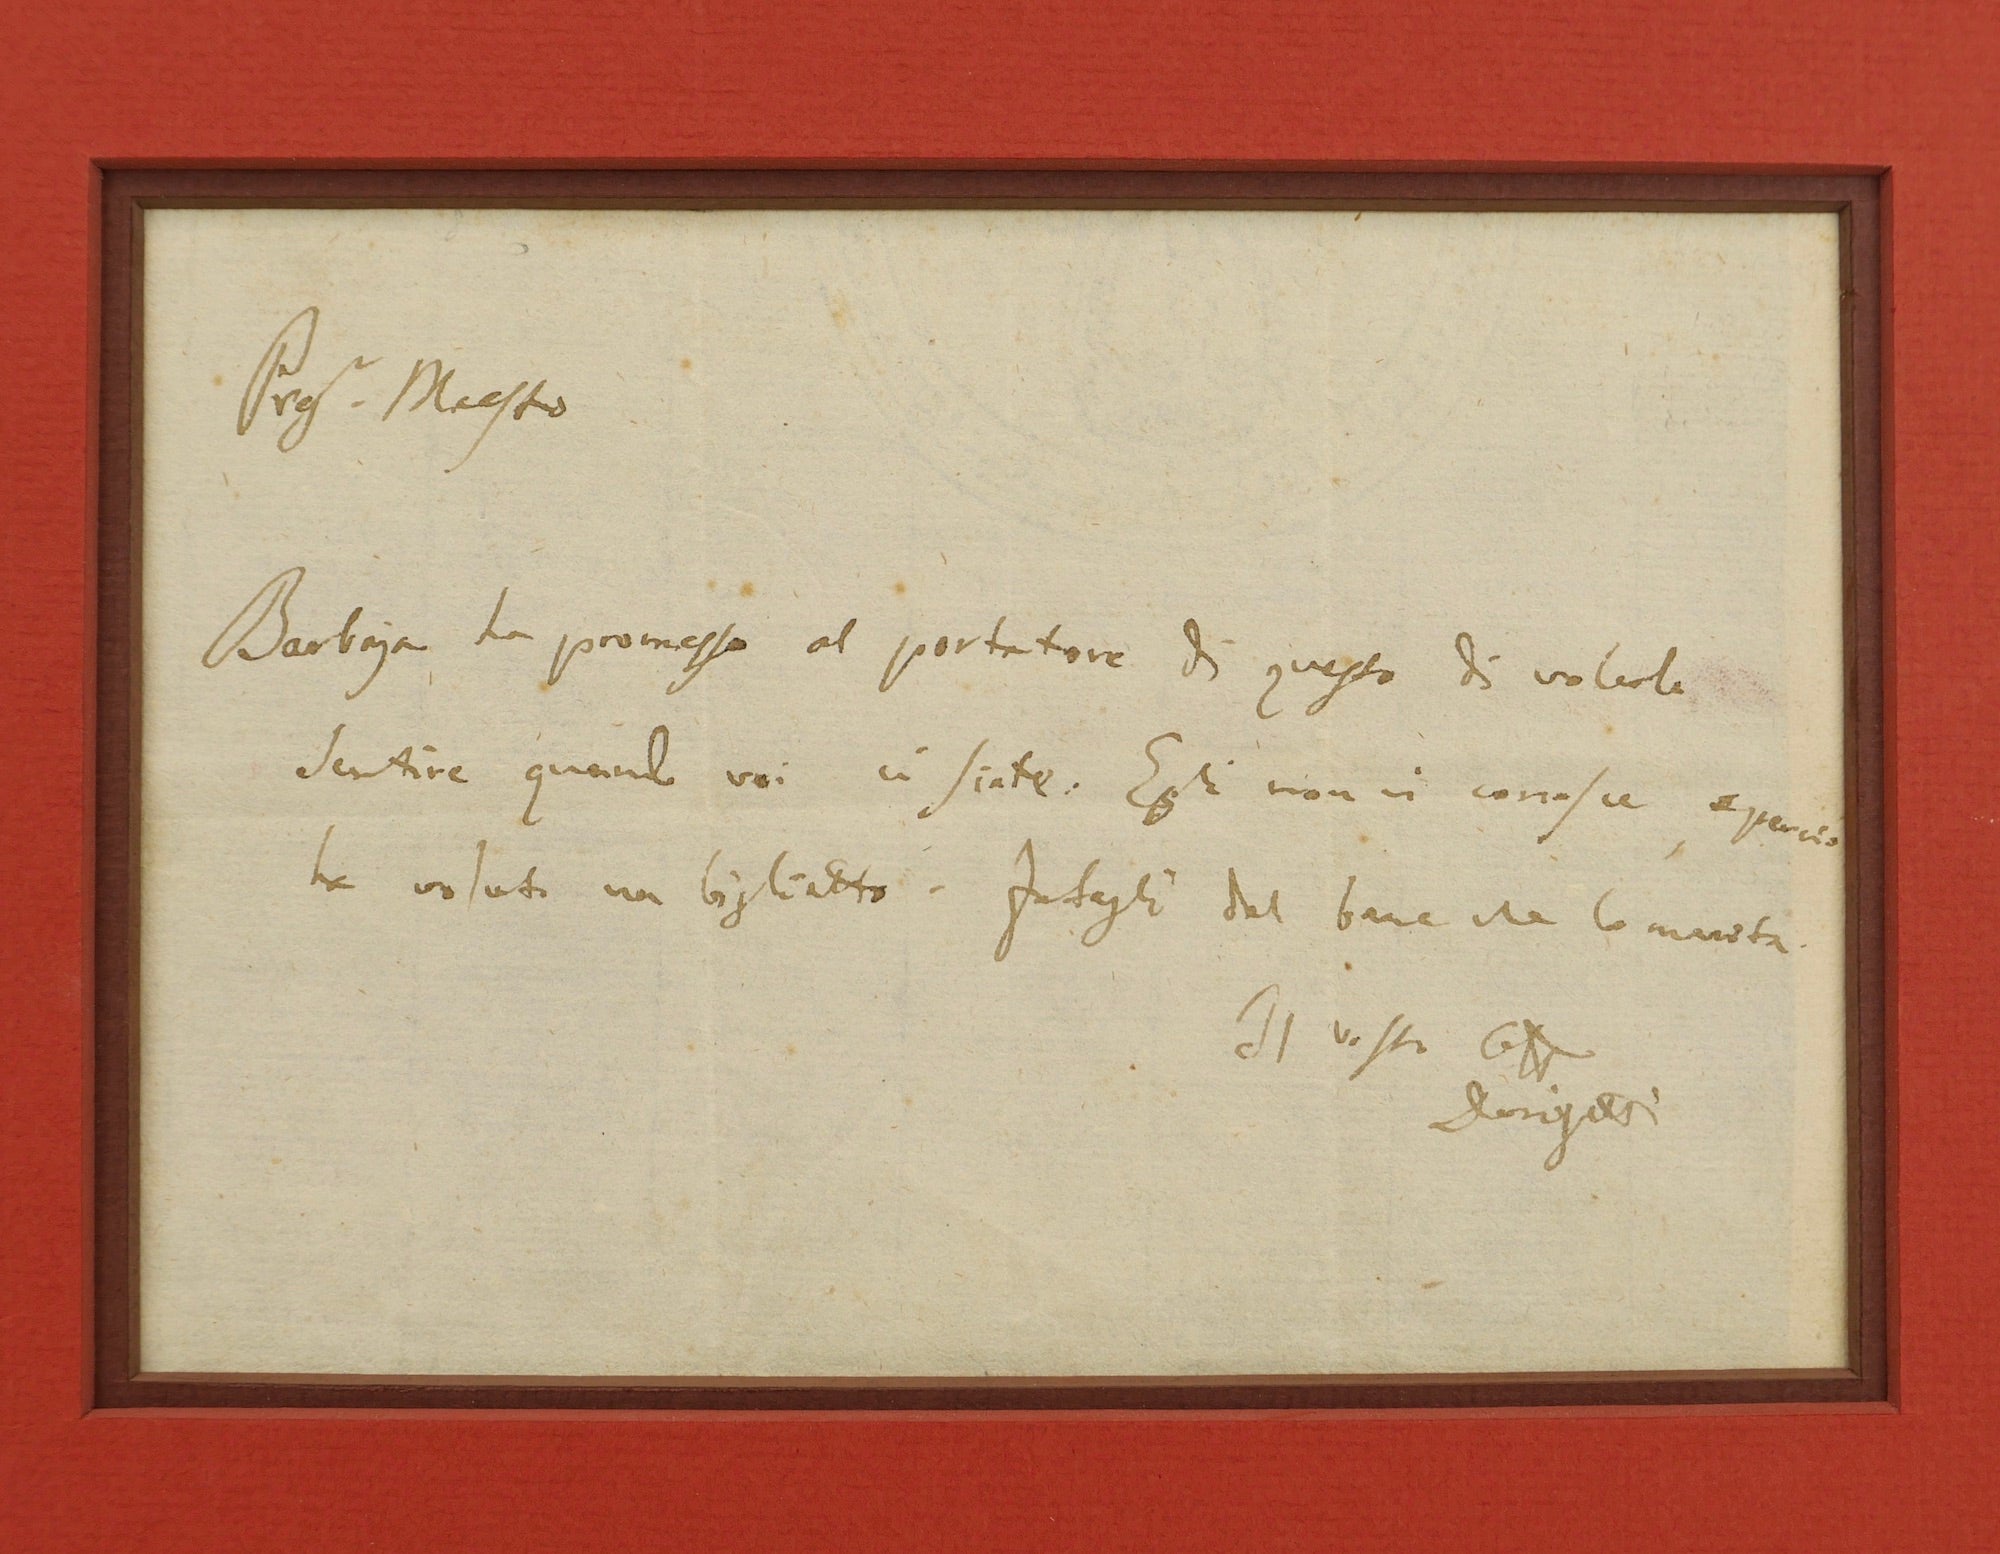 Preg.º Maestro
Barbaja ha promesso al portatore di questo di volerlo
sentire quando voi ci siate. Egli non vi conosce, e perciò
ha voluto un biglietto. Fategli del bene che lo merita.
Il vostro aff
Donizetti